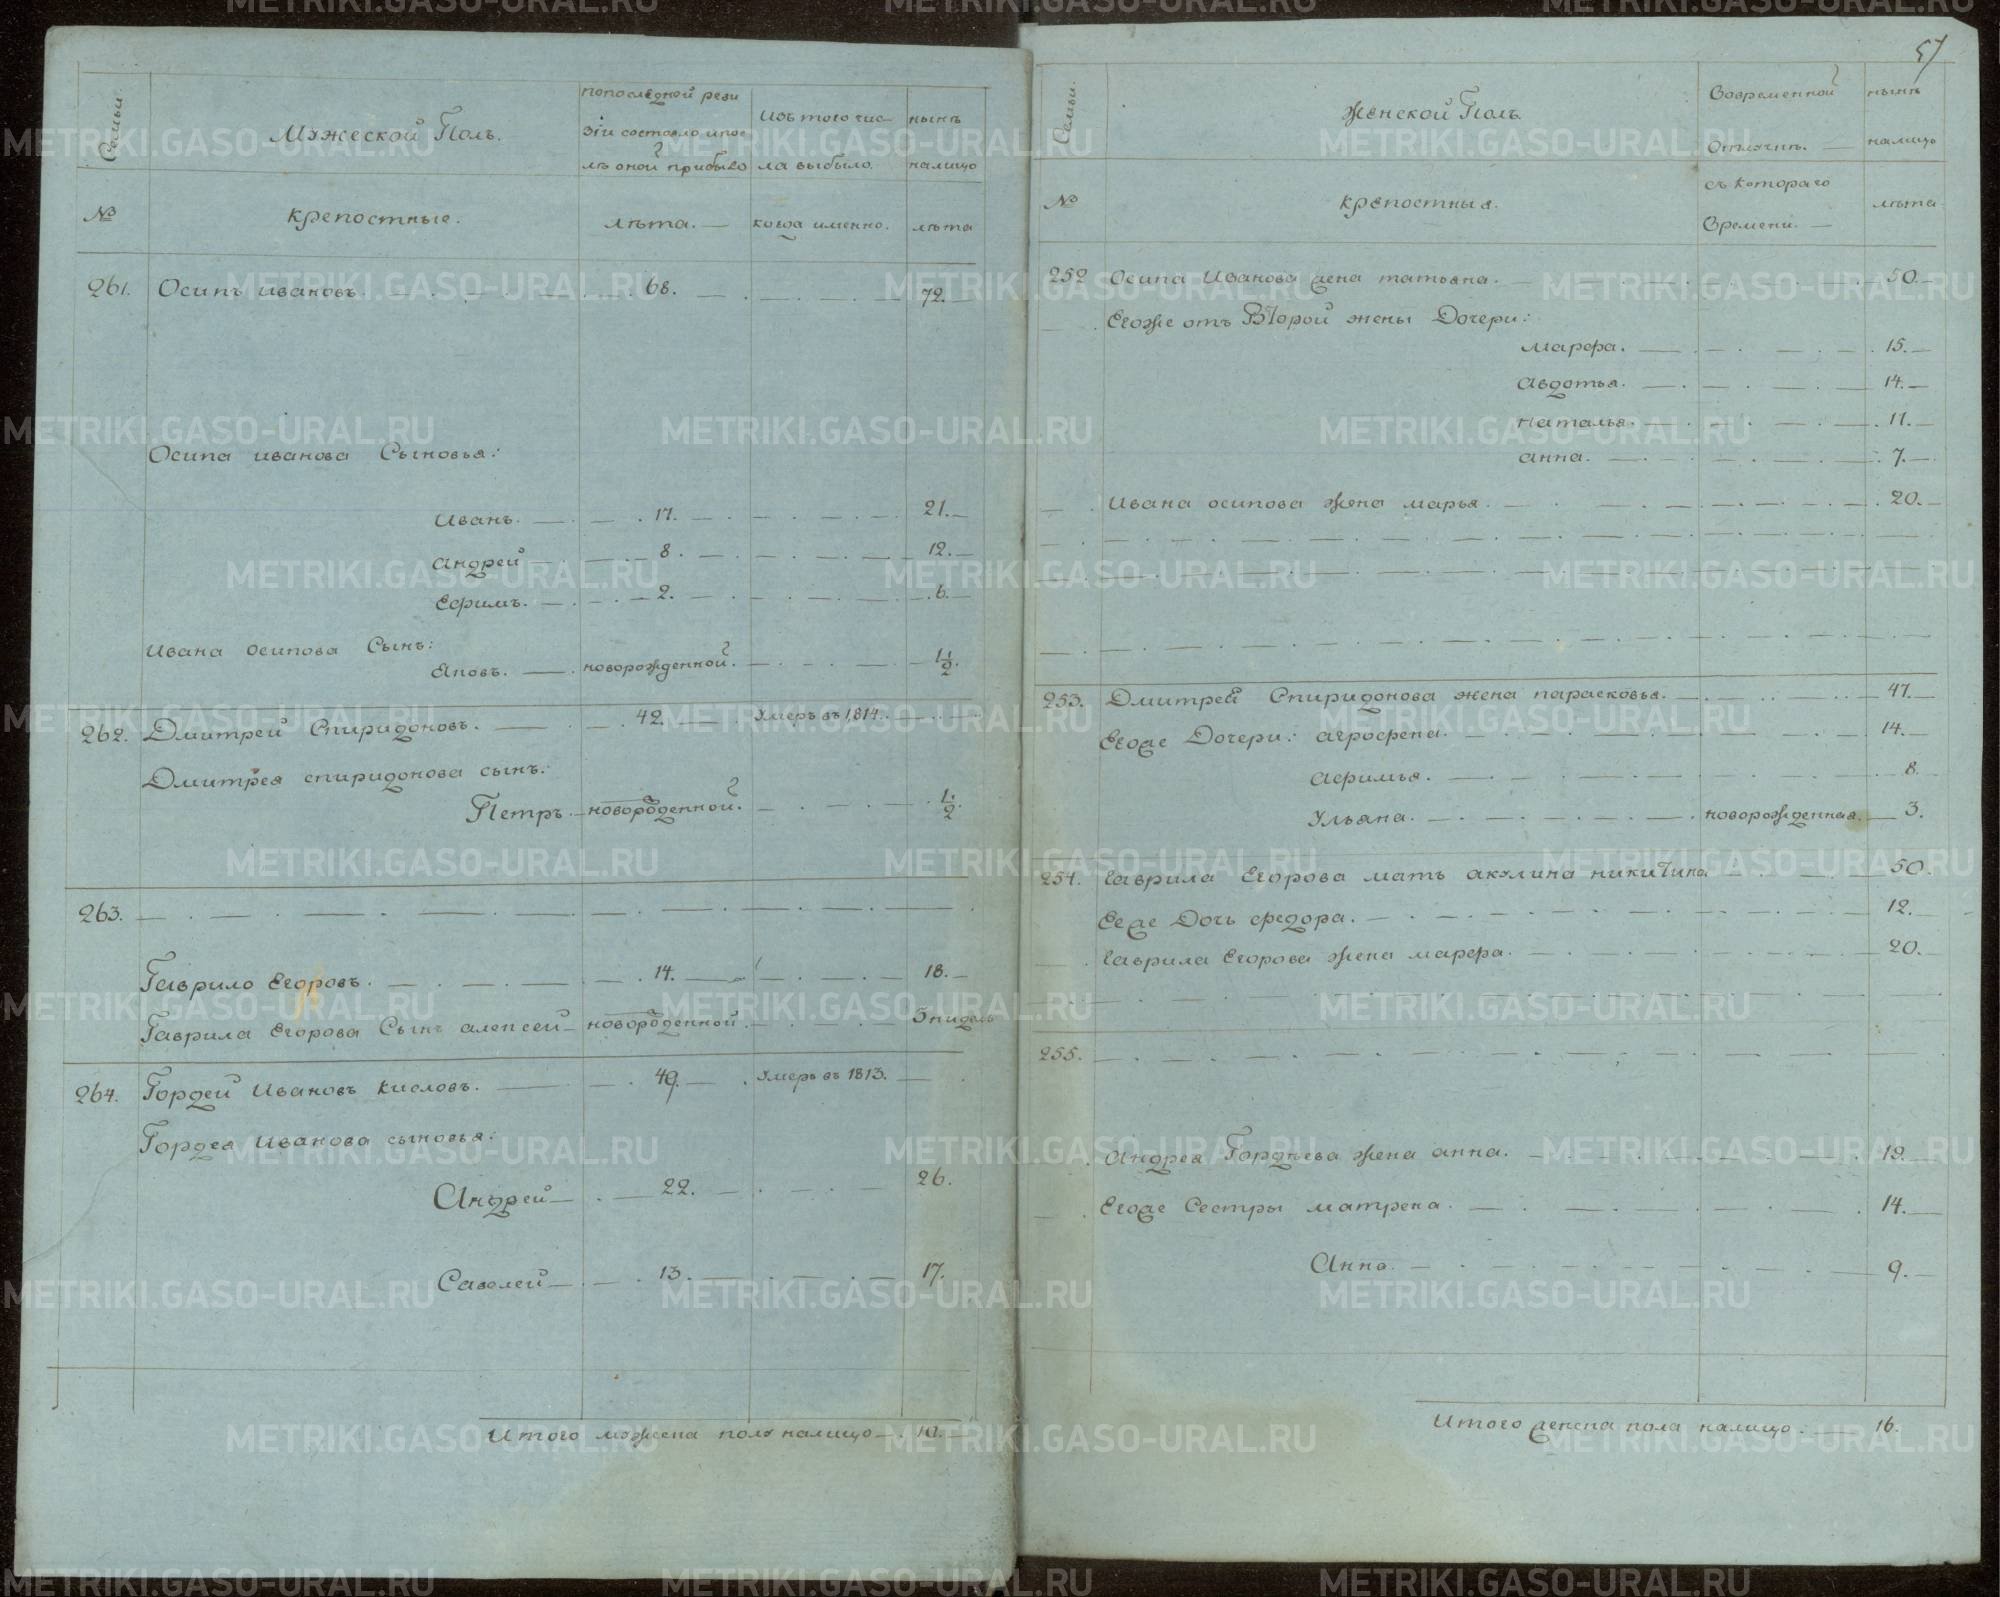 Семьи.
Мужеской Полъ.
попоследной реви
зiи состояло ипос
лѣ оной прибыло
Изъ того чис
ла выбыло.
нынѣ
налицо
№
крепостные.
лѣта.
когда именно.
лѣта
261. Осипъ ивановъ. 68. 72.
Осипа иванова Сыновья:
Иванъ. 17. 21.
андрей 8. 12.
Ефимъ. 2. 6.
Ивана осипова Сынъ:
новорожденной. 1 1/2.
262. Дмитрей Спиридоновъ. 42. Умеръ въ 1814.
Дмитрея спиридонова сынъ:
Петръ новорожденной. 1/2.
263.
Гаврило Егоровъ. 14. 18.
Гаврила Егорова Сынъ алексей новорожденной. 5 нидель
264. Гордей Ивановъ кисловъ. 49. Умеръ въ 1813.
Гордея Иванова сыновья:
Андрей 22. 26.
Савелей 13. 17.
Итого мужеска полу налицо 10.
57
Семьи.
Женской Полъ.
Вовременной
Отлучкѣ.
нынѣ
налицо
№
крепостныя.
съ котораго
Времени.
лѣта
252 Осипа Иванова жена татьяна. 50.
Егоже отъ Второй жены Дочери:
марфа. 15.
авдотья. 14.
наталья. 11.
анна. 7.
Ивана осипова жена марья. 20.
253. Дмитрея Спиридонова жена парасковья. 47.
Егоже Дочери: агрофена. 14.
афимья. 8.
Ульяна. новорожденная. 3.
254. Гаврила Егорова мать акулина никитина 50.
Ееже Дочь федора. 12.
Гаврила Егорова жена марфа. 20.
255.
Андрея Гордѣева жена анна. 19.
Егоже Сестры матрена. 14.
Анна. 9.
Итого женска пола налицо: 16.
METRIKI.GASO-URAL.RU